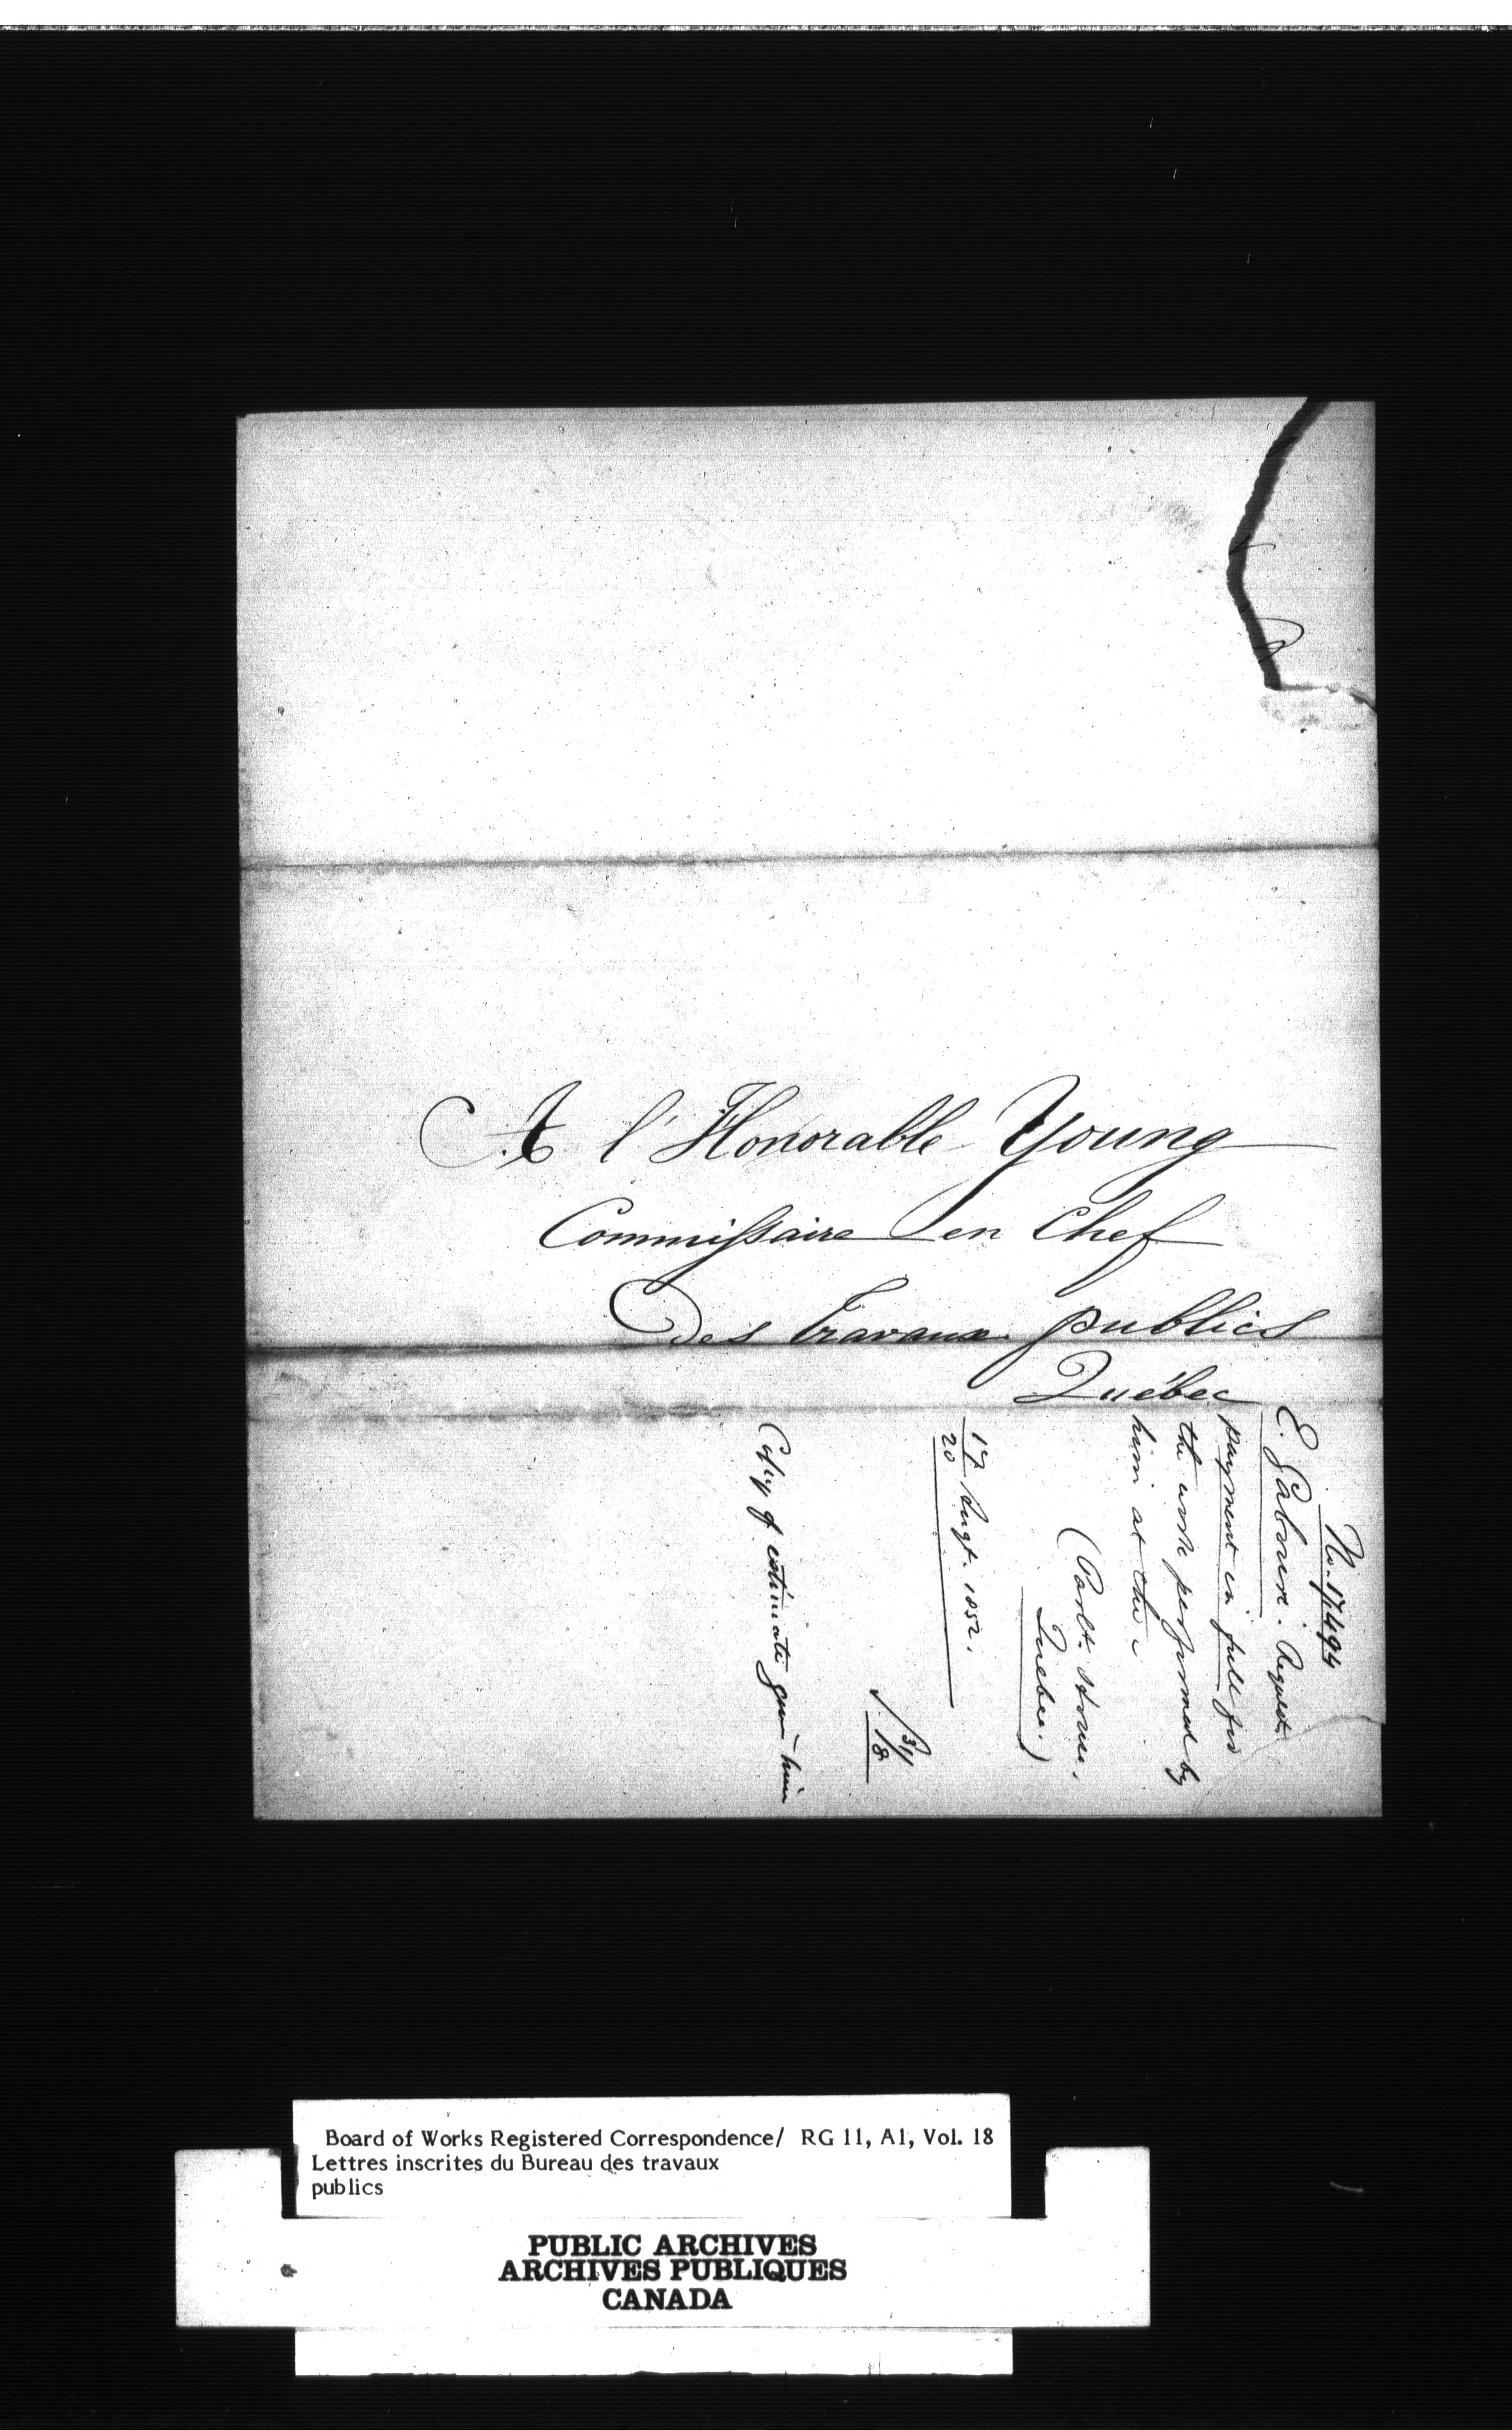 A l'Honorable Young
Commissaire en Chef
Des Travaux publics
Québec
No. 17,494
E. Gabour. Requests
payment in full for
the work performed by
him at the
(Parlt. House,
Quebec.)
17/20 Augt. 1852.
31/8
Copy of estimate given him
Board of Works Registered Correspondence/ RG 11, A1, Vol. 18
Lettres inscrites du Bureau des travaux
publics
PUBLIC ARCHIVES
ARCHIVES PUBLIQUES
CANADA